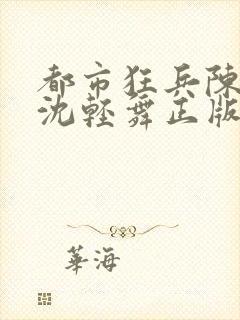 都市狂兵陳
沈輕舞正版
華海